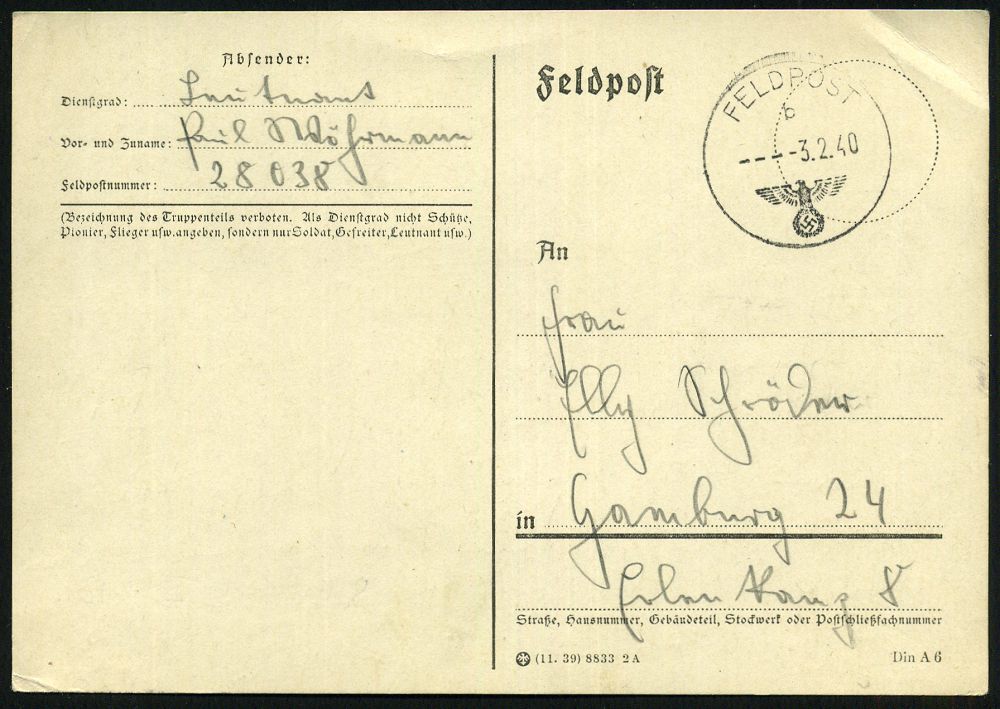 Absender:
Dienstgrad: Leutnant
Vor- und Zuname: Paul Wöhrmann
Feldpostnummer: 28038
(Bezeichnung des Truppenteils verboten. Als Dienstgrad nicht Schütze,
Pionier, Flieger usw. angeben, sondern nur Soldat, Gefreiter, Leutnant usw.)
Feldpost
FELDPOST
b
----3.2.40
An
Frau
Elly Schröder
in Hamburg 24
Erlenkamp 8
Straße, Hausnummer, Gebäudeteil, Stockwerk oder Postschließfachnummer
(11. 39) 8833 2 A
Din A 6